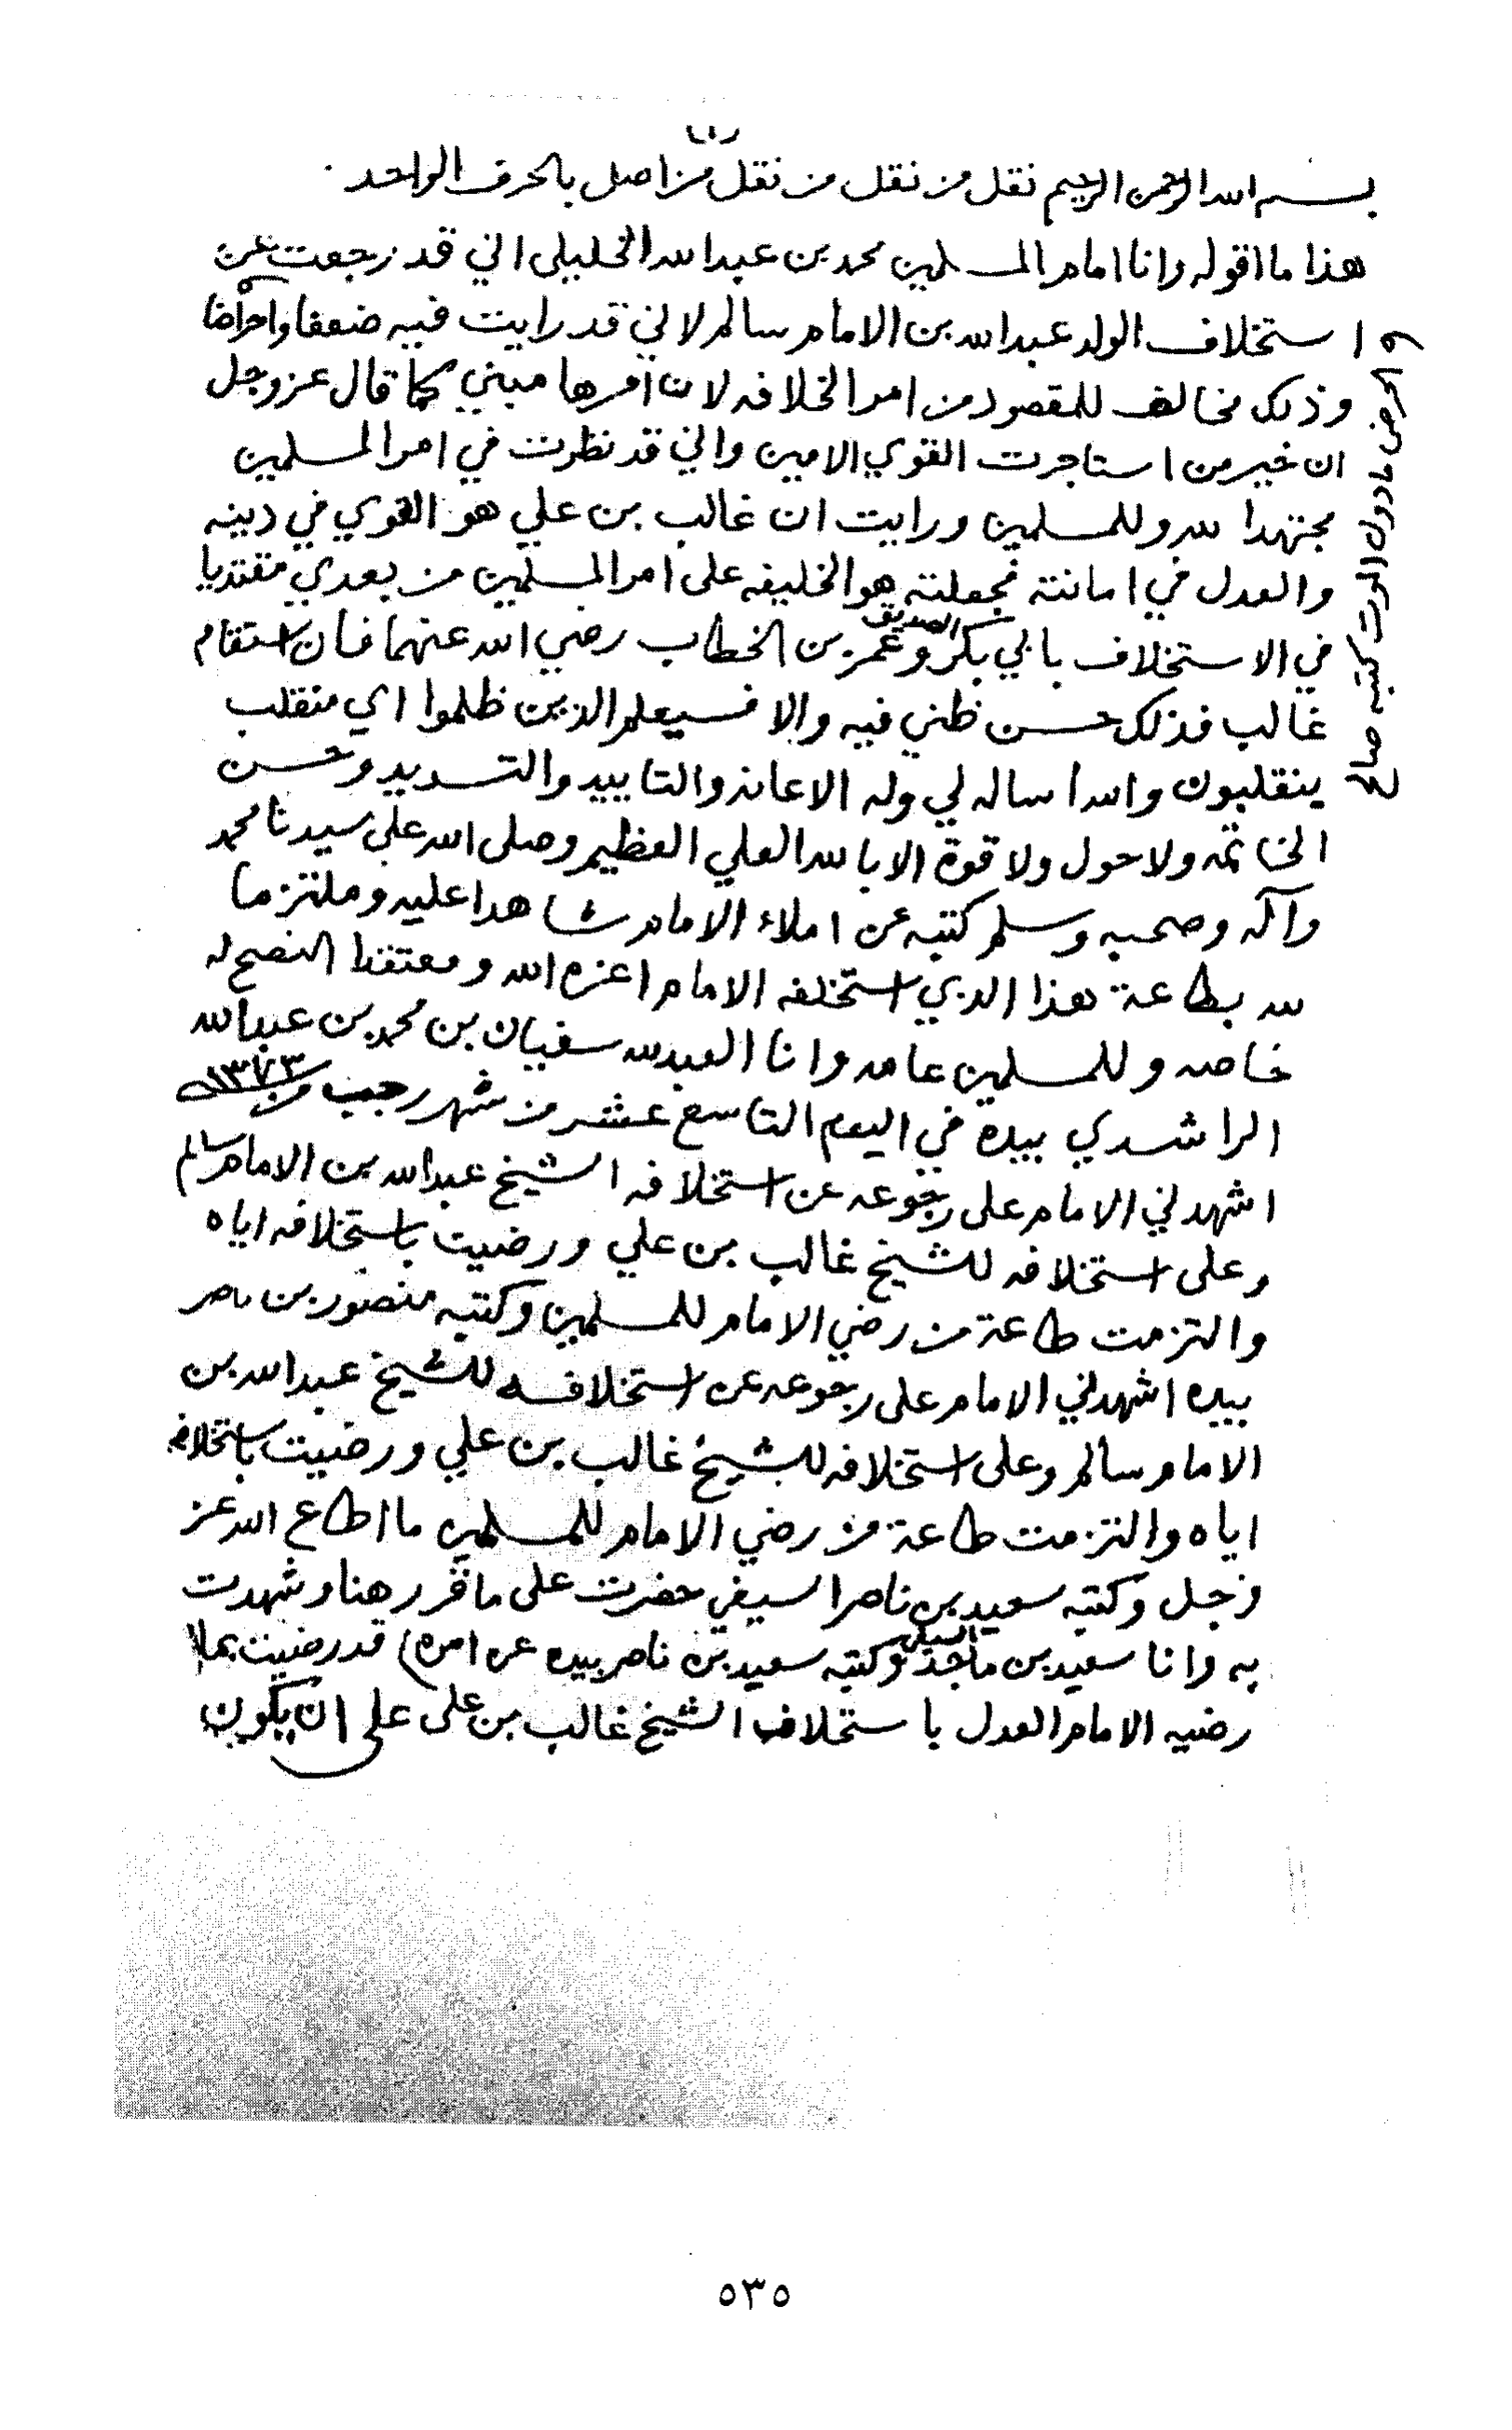 (١)
بسم الله الرحمن الرحيم نقل من نقل من نقل من اصل بالحرف الواحد.
هذا ما اقوله وانا امام المسلمين محمد بن عبدالله الخليلي اني قد رجعت عن
استخلاف الولد عبدالله بن الامام سالم لاني قد رايت فيه ضعفا وامراضا
وذلك مخالف للمقصود من امر الخلافه لان امرها مبني كما قال عز وجل
ان خير من استاجرت القوي الامين واني قد نظرت في امر المسلمين
مجتهدا لله وللمسلمين ورايت ان غالب بن علي هو القوي في دينه
والعدل في امانته فجعلته هو الخليفه على امر المسلمين من بعدي مقتديا
في الاستخلاف بابي بكر الصديق وعمر بن الخطاب رضي الله عنهما فان استقام
غالب فذلك حسن ظني فيه والا فسيعلم الذين ظلموا اي منقلب
ينقلبون والله أساله لي وله الاعانه والتاييد والتسديد وحسن
الخاتمه ولا حول ولا قوة الا بالله العلي العظيم وصلى الله على سيدنا محمد
وآله وصحبه وسلم كتبه عن املاء الامام شاهدا عليه وملتزما
لله بطاعة هذا الذي استخلفه الامام اعزه الله ومعتقدا النصح له
خاصه وللمسلمين عامه وانا العبد لله سفيان بن محمد بن عبدالله
الراشدي بيده في اليوم التاسع عشر من شهر رجب من ١٣٧٣
اشهدني الامام على رجوعه عن استخلافه الشيخ عبدالله بن الامام سالم
وعلى استخلافه للشيخ غالب بن علي ورضيت باستخلافه اياه
والتزمت طاعة من رضي الامام للمسلمين وكتبه منصور بن ناصر
بيده اشهدني الامام على رجوعه عن استخلافه للشيخ عبدالله بن
الامام سالم وعلى استخلافه للشيخ غالب بن علي ورضيت باستخلافه
اياه والتزمت طاعة من رضي الامام للمسلمين ما اطاع الله عز
وجل وكتبه سعيد بن ناصر السيفي حضرت على ما قرر هنا وشهدت
به وانا سعيد بن ماجد وكتبه سعيد بن ناصر بيده عن امره) قد رضيت بما
رضيه الامام العدل باستخلاف الشيخ غالب بن علي على ان يكون
كتبه صالح
٥٣٥